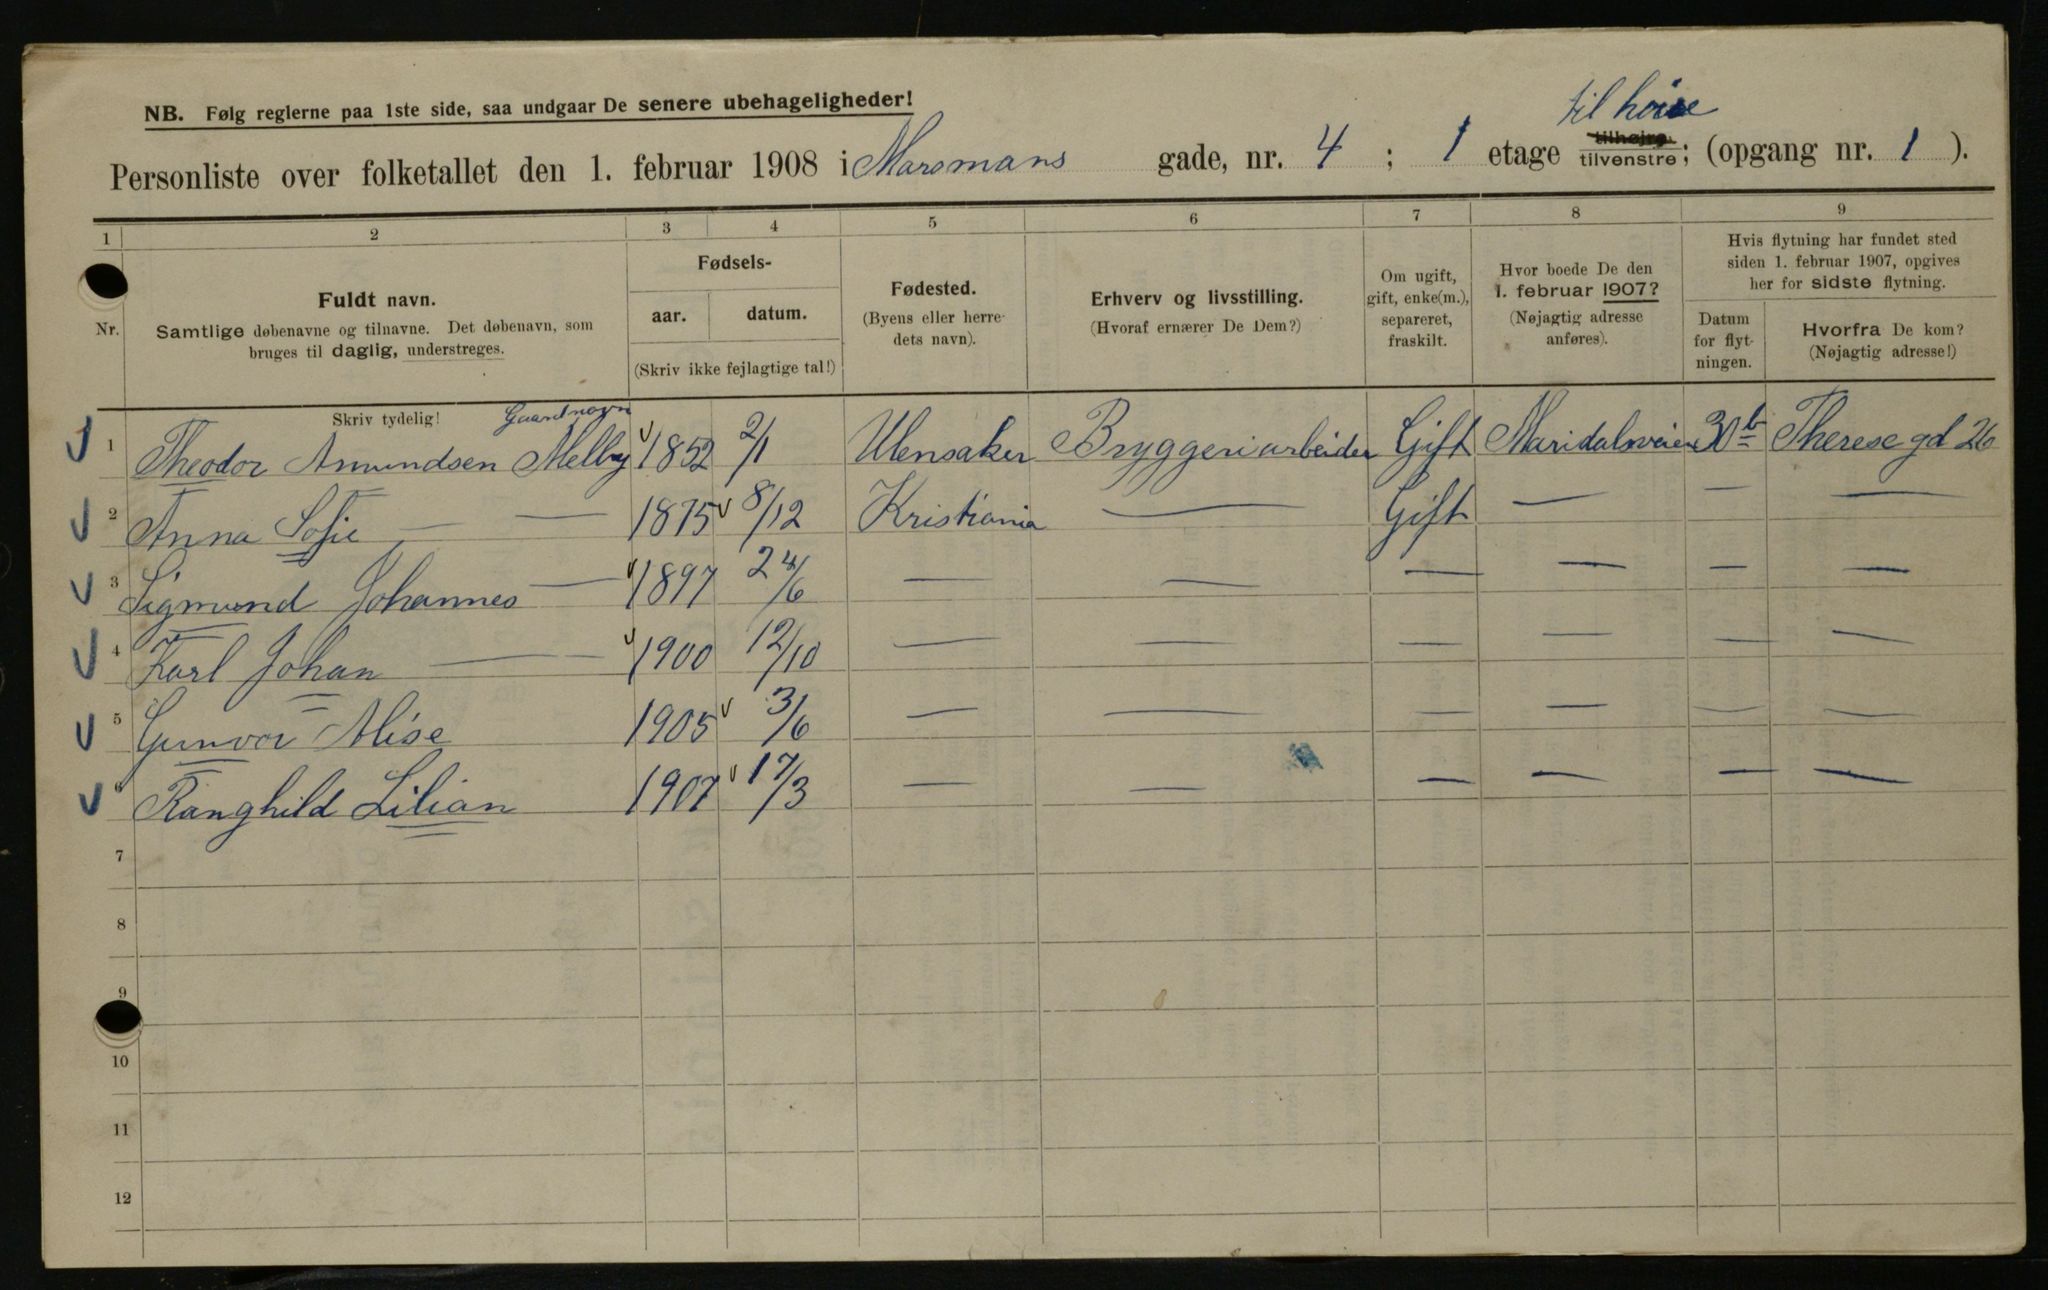 NB. Følg reglerne paa 1ste side, saa undgaar De senere ubehageligheder!
til høire
Personliste over folketallet den 1. februar 1908 i Maromans gade, nr. 4 ; 1 etage tilhøjre tilvenstre; (opgang nr. 1 ).
1 2 3 4 5 6 7 8 9
Nr.
Fuldt navn.
Samtlige døbenavne og tilnavne. Det døbenavn, som
bruges til daglig, understreges.
Fødsels-
aar. datum.
(Skriv ikke fejlagtige tal!)
Fødested.
(Byens eller herre-
dets navn).
Erhverv og livsstilling.
(Hvoraf ernærer De Dem?)
Om ugift,
gift, enke(m.),
separeret,
fraskilt.
Hvor boede De den
1. februar 1907?
(Nøjagtig adresse
anføres).
Hvis flytning har fundet sted
siden 1. februar 1907, opgives
her for sidste flytning.
Datum
for flyt-
ningen.
Hvorfra De kom?
(Nøjagtig adresse!)
Skriv tydelig! Gaardnavn
1 Theodor Amundsen Melby 1852 2/1 Ulensaker Bryggeriarbeider Gift Maridalsveien 30b Therese gd 26
2 Anna Sofie — — 1875 8/12 Kristiania — Gift — — —
3 Sigmund Johannes — 1897 24/6 — — — — — —
4 Karl Johan — 1900 12/10 — — — — — —
5 Gunvor Alise 1905 3/6 — — — — — —
6 Ranghild Lilian 1907 17/3 — — — — — —
7
8
9
10
11
12